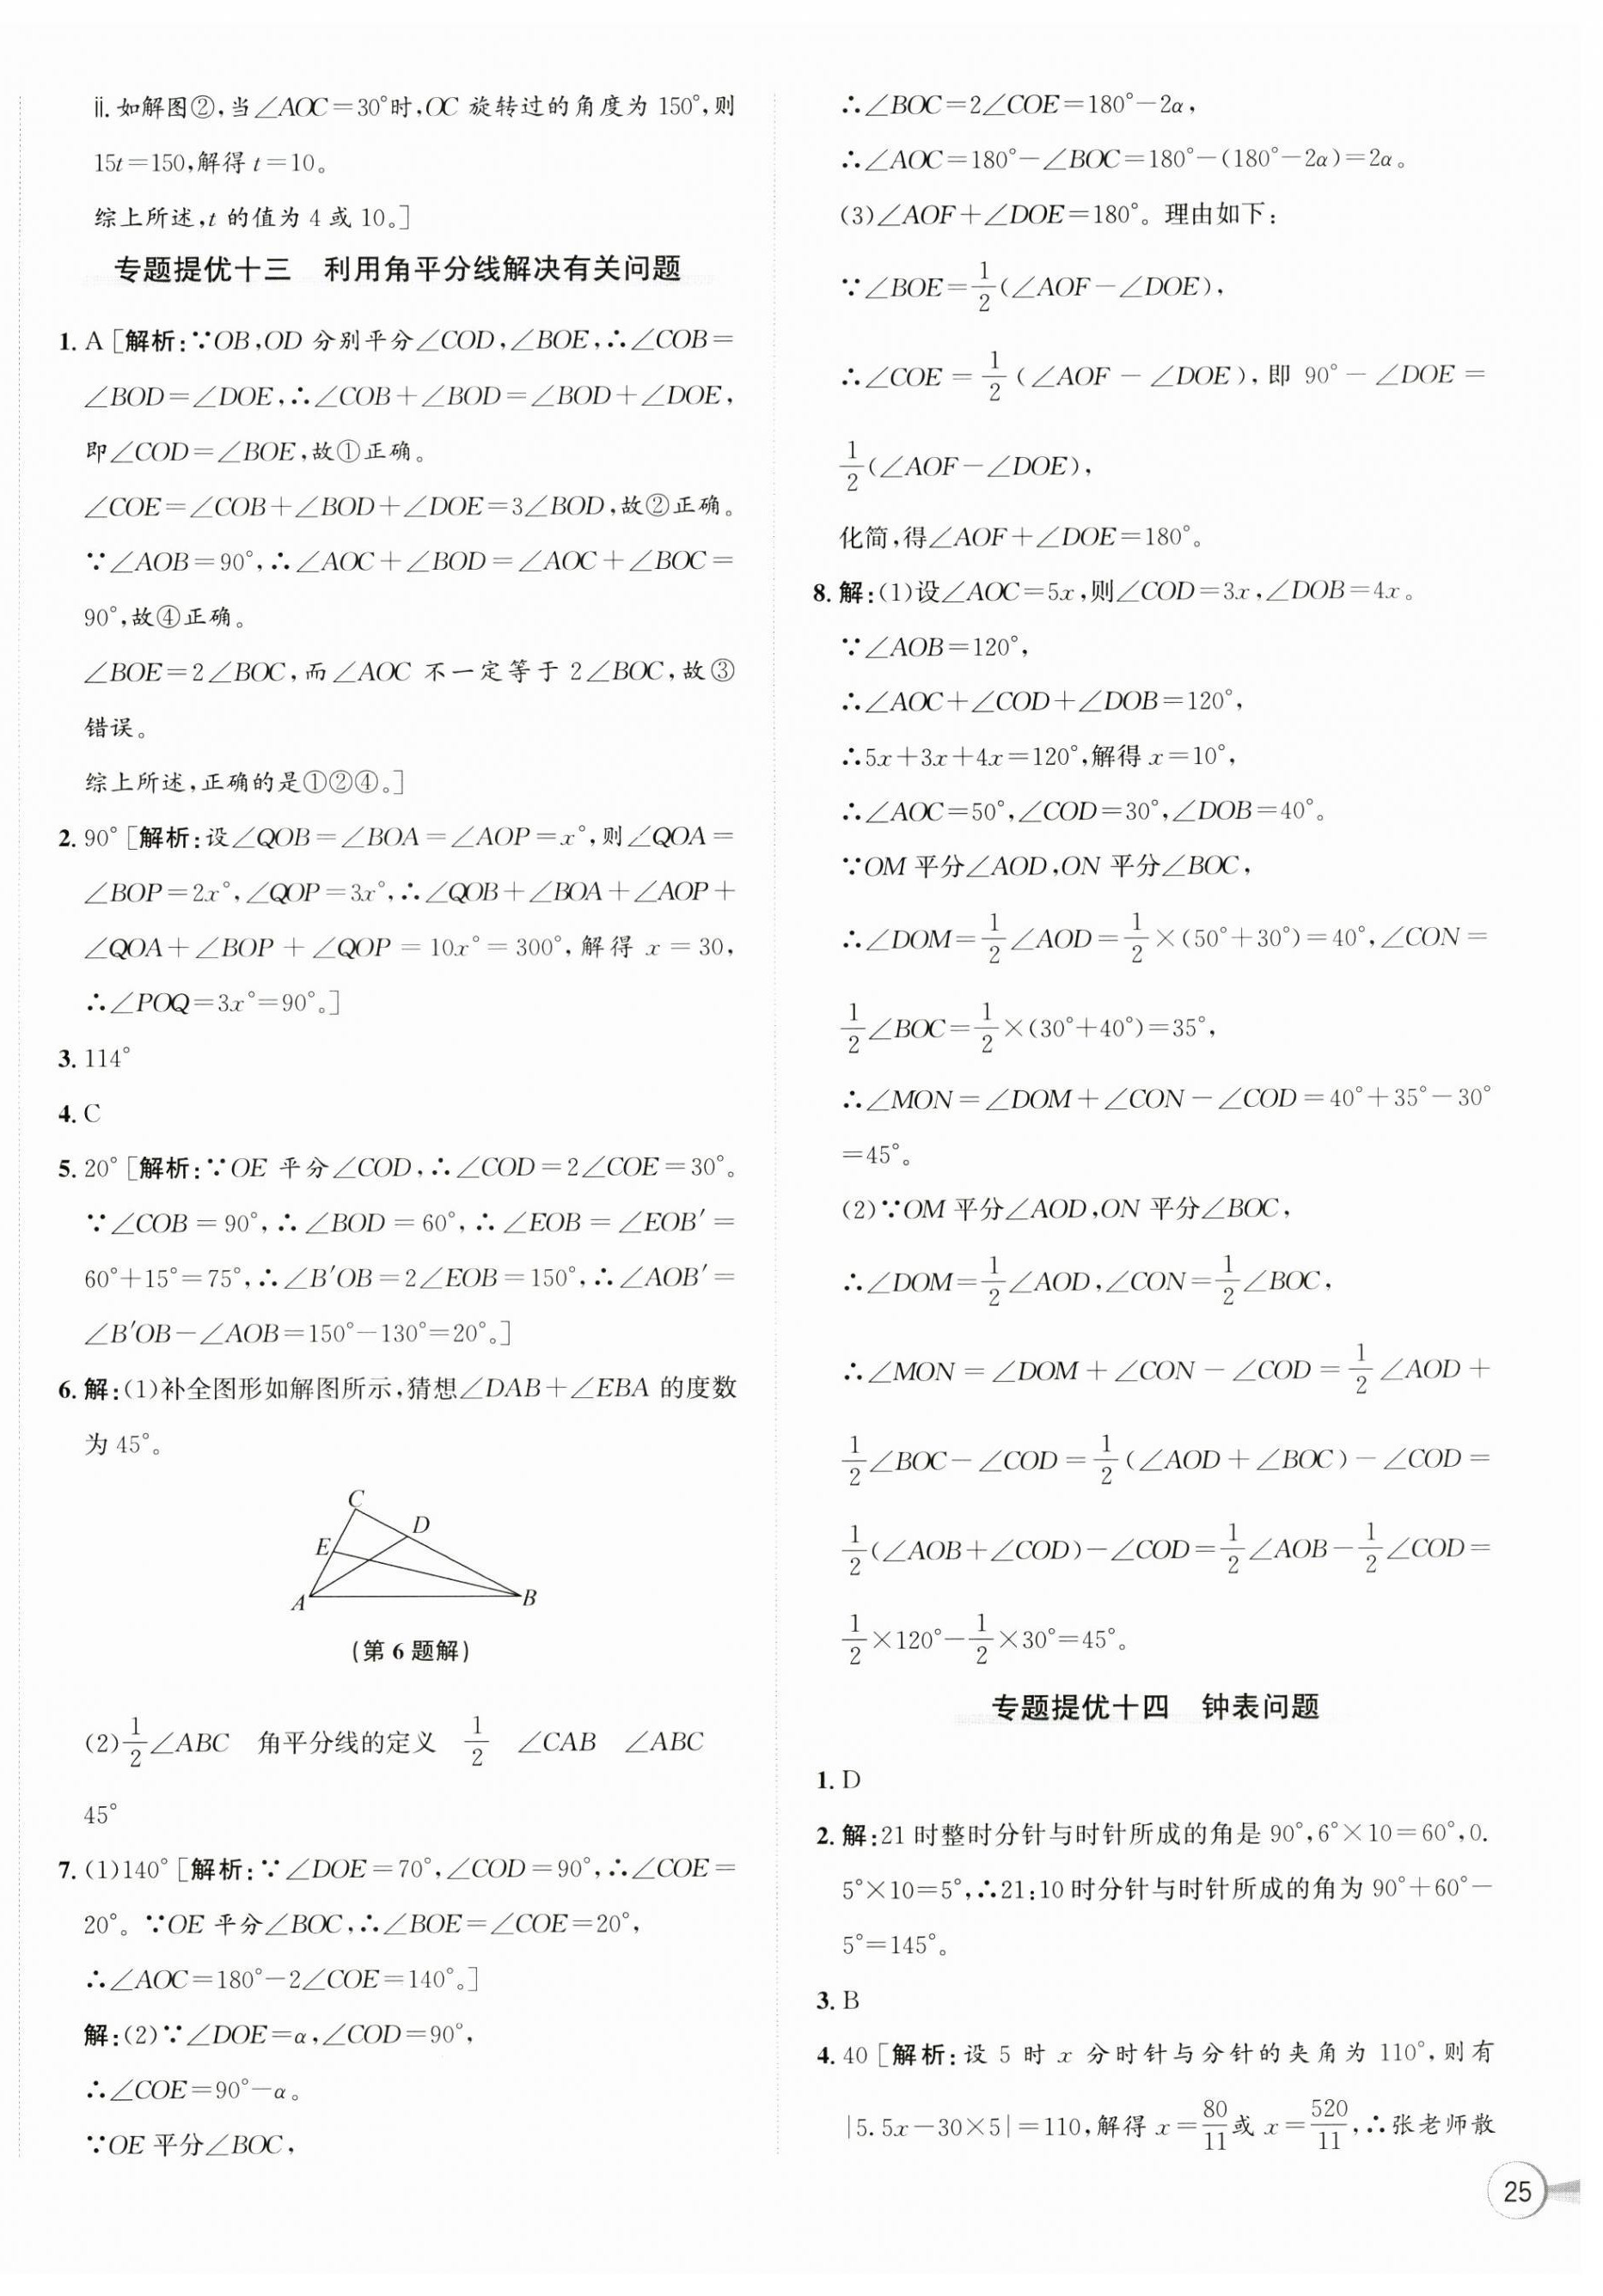 ⅱ. 如解图②,当∠AOC=30°时,OC 旋转过的角度为 150°,则
15t=150,解得 t=10。
综上所述,t 的值为 4 或 10。]
专题提优十三　利用角平分线解决有关问题
1. A [解析:∵OB,OD 分别平分∠COD,∠BOE,∴∠COB=
∠BOD=∠DOE,∴∠COB+∠BOD=∠BOD+∠DOE,
即∠COD=∠BOE,故①正确。
∠COE=∠COB+∠BOD+∠DOE=3∠BOD,故②正确。
∵∠AOB=90°,∴∠AOC+∠BOD=∠AOC+∠BOC=
90°,故④正确。
∠BOE=2∠BOC,而∠AOC 不一定等于 2∠BOC,故③
错误。
综上所述,正确的是①②④。]
2. 90° [解析:设∠QOB=∠BOA=∠AOP=x°,则∠QOA=
∠BOP=2x°,∠QOP=3x°,∴∠QOB+∠BOA+∠AOP+
∠QOA+∠BOP+∠QOP=10x°=300°,解得 x=30,
∴∠POQ=3x°=90°。]
3. 114°
4. C
5. 20° [解析:∵OE 平分∠COD,∴∠COD=2∠COE=30°。
∵∠COB=90°,∴∠BOD=60°,∴∠EOB=∠EOB′=
60°+15°=75°,∴∠B′OB=2∠EOB=150°,∴∠AOB′=
∠B′OB-∠AOB=150°-130°=20°。]
6. 解:(1)补全图形如解图所示,猜想∠DAB+∠EBA 的度数
为 45°。
C
D
E
A
B
(第 6 题解)
(2)1/2∠ABC　角平分线的定义　1/2　∠CAB　∠ABC
45°
7. (1)140° [解析:∵∠DOE=70°,∠COD=90°,∴∠COE=
20°。∵OE 平分∠BOC,∴∠BOE=∠COE=20°,
∴∠AOC=180°-2∠COE=140°。]
解:(2)∵∠DOE=α,∠COD=90°,
∴∠COE=90°-α。
∵OE 平分∠BOC,
∴∠BOC=2∠COE=180°-2α,
∴∠AOC=180°-∠BOC=180°-(180°-2α)=2α。
(3)∠AOF+∠DOE=180°。理由如下:
∵∠BOE=1/2(∠AOF-∠DOE),
∴∠COE=1/2(∠AOF-∠DOE),即 90°-∠DOE=
1/2(∠AOF-∠DOE),
化简,得∠AOF+∠DOE=180°。
8. 解:(1)设∠AOC=5x,则∠COD=3x,∠DOB=4x。
∵∠AOB=120°,
∴∠AOC+∠COD+∠DOB=120°,
∴5x+3x+4x=120°,解得 x=10°,
∴∠AOC=50°,∠COD=30°,∠DOB=40°。
∵OM 平分∠AOD,ON 平分∠BOC,
∴∠DOM=1/2∠AOD=1/2×(50°+30°)=40°,∠CON=
1/2∠BOC=1/2×(30°+40°)=35°,
∴∠MON=∠DOM+∠CON-∠COD=40°+35°-30°
=45°。
(2)∵OM 平分∠AOD,ON 平分∠BOC,
∴∠DOM=1/2∠AOD,∠CON=1/2∠BOC,
∴∠MON=∠DOM+∠CON-∠COD=1/2∠AOD+
1/2∠BOC-∠COD=1/2(∠AOD+∠BOC)-∠COD=
1/2(∠AOB+∠COD)-∠COD=1/2∠AOB-1/2∠COD=
1/2×120°-1/2×30°=45°。
专题提优十四　钟表问题
1. D
2. 解:21 时整时分针与时针所成的角是 90°,6°×10=60°,0.
5°×10=5°,∴21:10 时分针与时针所成的角为 90°+60°-
5°=145°。
3. B
4. 40 [解析:设 5 时 x 分时针与分针的夹角为 110°,则有
|5.5x-30×5|=110,解得 x=80/11或 x=520/11,∴张老师散
25